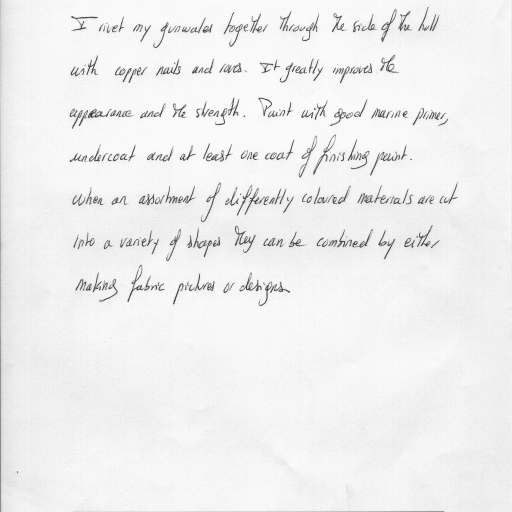 I rivet my gunwales together through the side of the hull
with copper nails and roves. It greatly improves the
appearance and the strength. Paint with good marine primer,
undercoat and at least one coat of finishing paint.
When an assortment of differently coloured materials are cut
into a variety of shapes they can be combined by either
making fabric pictures or designs.